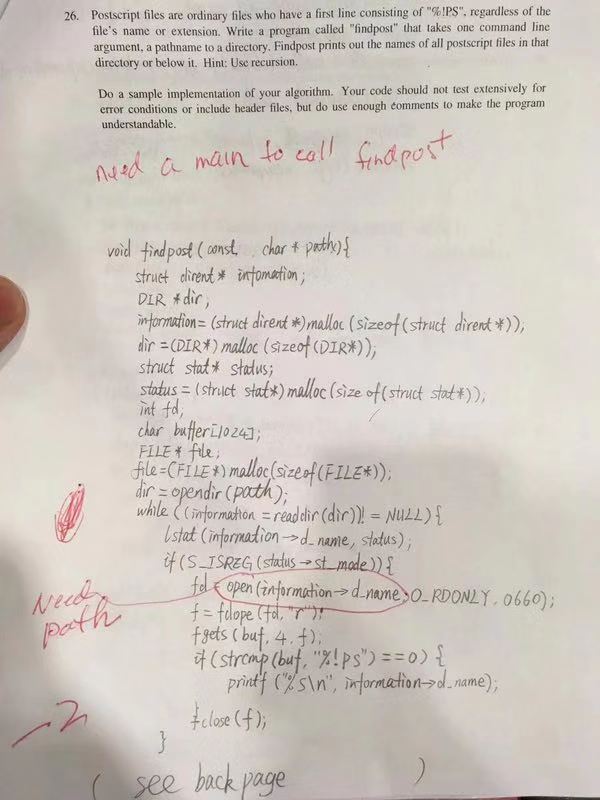 26. Postscript files are ordinary files who have a first line consisting of "%!PS", regardless of the
file's name or extension. Write a program called "findpost" that takes one command line
argument, a pathname to a directory. Findpost prints out the names of all postscript files in that
directory or below it. Hint: Use recursion.
Do a sample implementation of your algorithm. Your code should not test extensively for
error conditions or include header files, but do use enough comments to make the program
understandable.
need a main to call findpost
void findpost(const char * path){
struct dirent * infomation;
DIR *dir;
information= (struct dirent *)malloc (sizeof(struct dirent *));
dir =(DIR*) malloc (sizeof(DIR*));
struct stat* status;
status = (struct stat*)malloc(size of(struct stat*));
int fd;
char buffer[1024];
FILE* file;
file=(FILE*)malloc(sizeof(FILE*));
dir = opendir(path);
while ((information = readdir(dir))!=NULL){
lstat (information->d_name, status);
if(S_ISREG(status->st_mode)){
fd = open(information->d_name, O_RDONLY, 0660);
Need path
f = fdope(fd,"r");
fgets(buf, 4, f);
if(strcmp(buf, "%!ps")==0){
printf("%s\n", information->d_name);
}
fclose(f);
-2
}
(see back page)